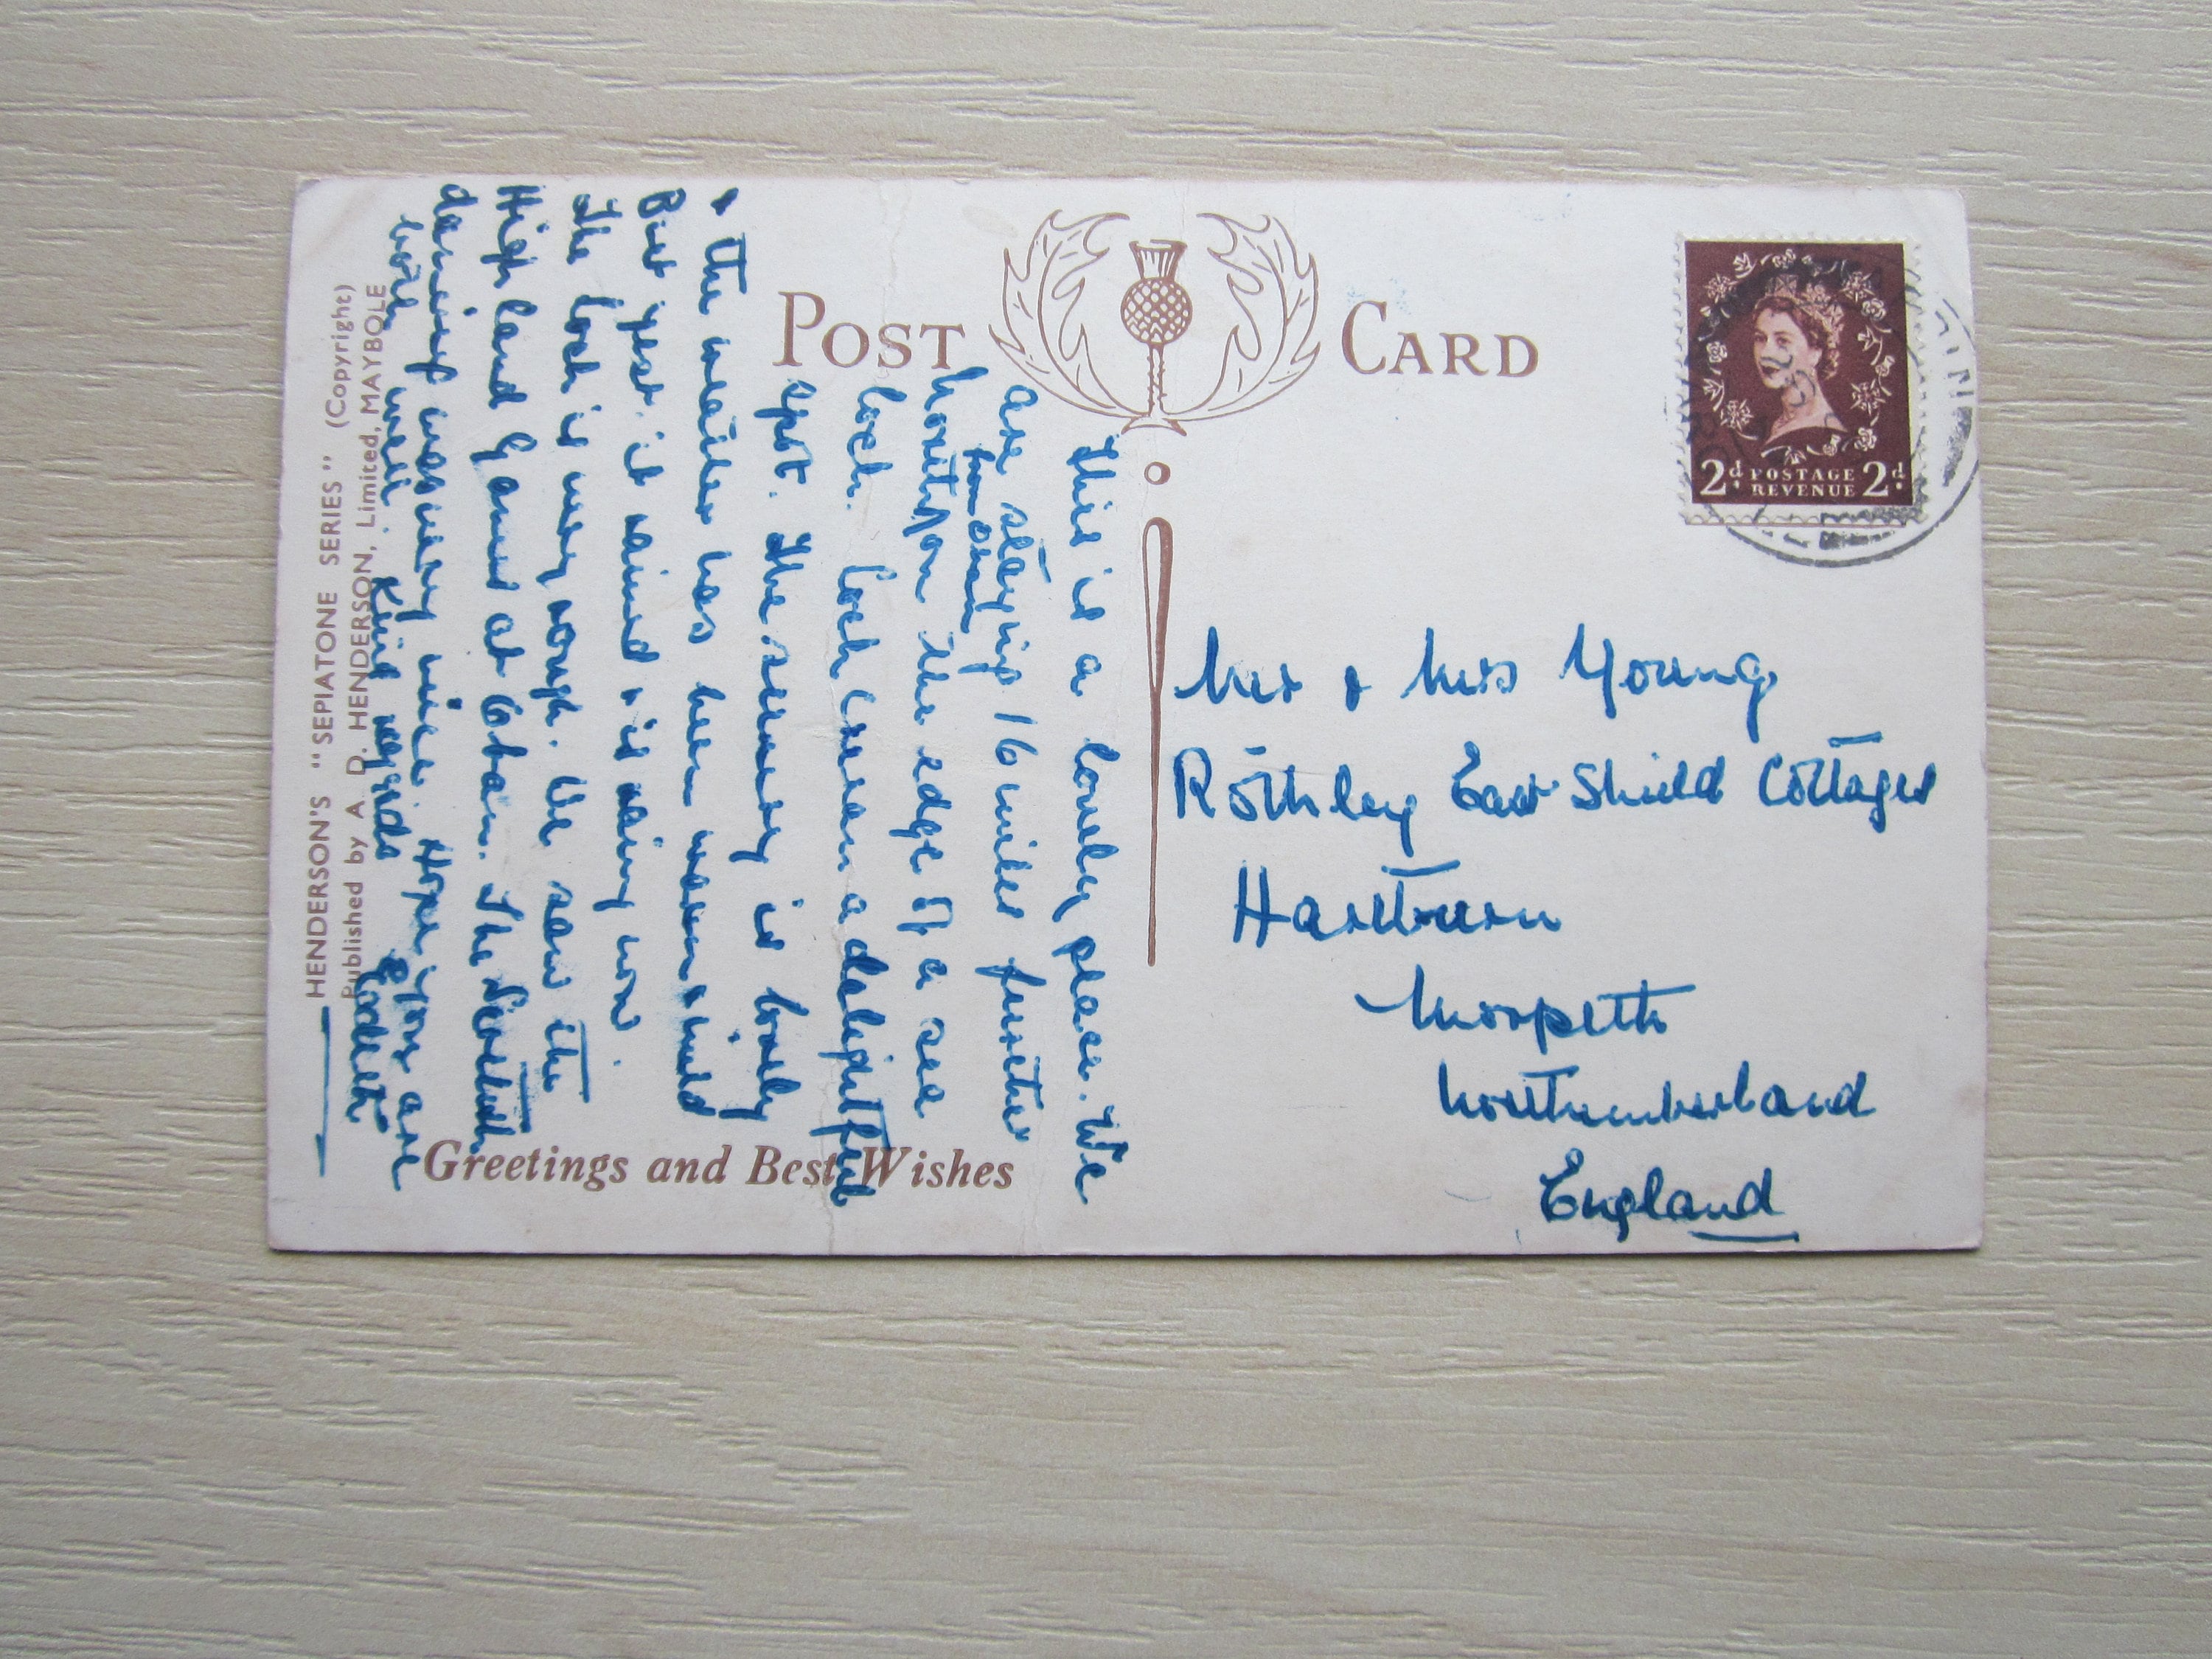 POST CARD
2d POSTAGE REVENUE 2d
Mr & Mrs Young
Rothley East Shield Cottages
Hartburn
Morpeth
Northumberland
England
This is a lovely place. We
are staying 16 miles further
from Oban
North on the edge of a sea
loch. Loch Creran a delightful
spot. The scenery is lovely
& the weather has been warm & mild
But yest. it rained & is raining now.
The loch is very rough. We saw the
Highland Games at Oban. The Scottish
dancing was very nice. Hope you are
both well. Kind regards
Edith
Greetings and Best Wishes
HENDERSON'S "SEPIATONE SERIES" (Copyright)
Published by A. D. HENDERSON, Limited, MAYBOLE